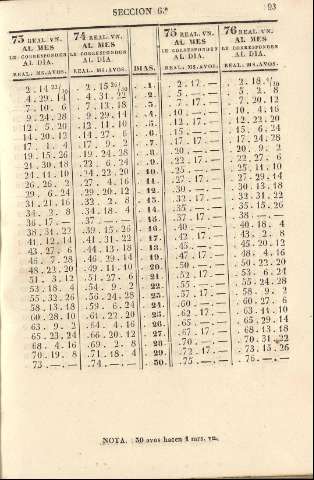 SECCION 6.ª 93
73 REAL. VN. 74 REAL. VN. 75 REAL. VN. 76 REAL. VN.
AL MES AL MES AL MES AL MES
LE CORRESPONDEN LE CORRESPONDEN LE CORRESPONDEN LE CORRESPONDEN
AL DIA. AL DIA. AL DIA. AL DIA.
REAL. MS. AVOS. REAL. MS. AVOS. DIAS. REAL. MS. AVOS. REAL. MS. AVOS.
2.14 22/30 2.15 26/30 1. 2.17.— 2.18 4/30
4.29.14 4.31.22 2. 5.—.— 5.2.8
7.10.6 7.13.18 3. 7.17.— 7.20.12
9.24.28 9.29.14 4. 10.—.— 10.4.16
12.5.20 12.11.10 5. 12.17.— 12.22.20
14.20.12 14.27.6 6. 15.—.— 15.6.24
17.1.4 17.9.2 7. 17.17.— 17.24.28
19.15.26 19.24.28 8. 20.—.— 20.9.2
21.30.18 22.6.24 9. 22.17.— 22.27.6
24.11.10 24.22.20 10. 25.—.— 25.11.10
26.26.2 27.4.16 11. 27.17.— 27.29.14
29.6.24 29.20.12 12. 30.—.— 30.13.18
31.21.16 32.2.8 13. 32.17.— 32.31.22
34.2.8 34.18.4 14. 35.—.— 35.15.26
36.17.— 37.—.— 15. 37.17.— 38.—.—
38.31.22 39.15.26 16. 40.—.— 40.18.4
41.12.14 41.31.22 17. 42.17.— 43.2.8
43.27.6 44.13.18 18. 45.—.— 45.20.12
46.7.28 46.29.14 19. 47.17.— 48.4.16
48.22.20 49.11.10 20. 50.—.— 50.22.20
51.3.12 51.27.6 21. 52.17.— 53.6.24
53.18.4 54.9.2 22. 55.—.— 55.24.28
55.32.26 56.24.28 23. 57.17.— 58.9.2
58.13.18 59.6.24 24. 60.—.— 60.27.6
60.28.10 61.22.20 25. 62.17.— 63.11.10
63.9.2 64.4.16 26. 65.—.— 65.29.14
65.23.24 66.20.12 27. 67.17.— 68.13.18
68.4.16 69.2.8 28. 70.—.— 70.31.22
70.19.8 71.18.4 29. 72.17.— 73.15.26
73.—.— 74.—.— 30. 75.—.— 76.—.—
NOTA. 30 avos hacen 1 mrs. vn.